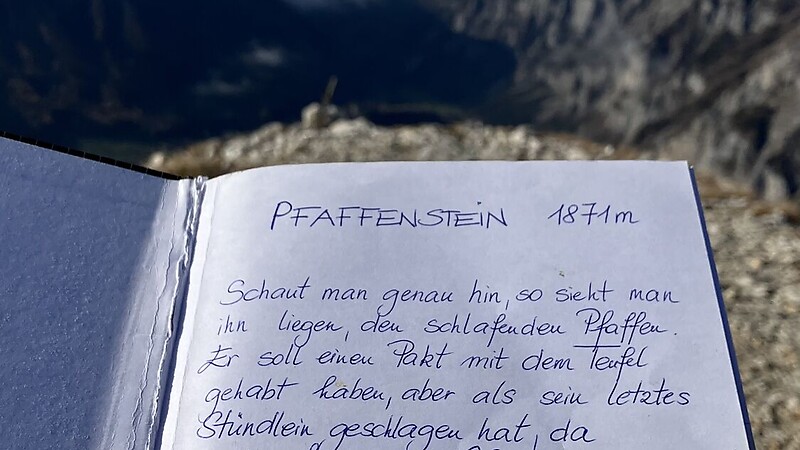 PFAFFENSTEIN 1871m
Schaut man genau hin, so sieht man
ihn liegen, den schlafenden Pfaffen.
Er soll einen Pakt mit dem Teufel
gehabt haben, aber als sein letztes
Stündlein geschlagen hat, da